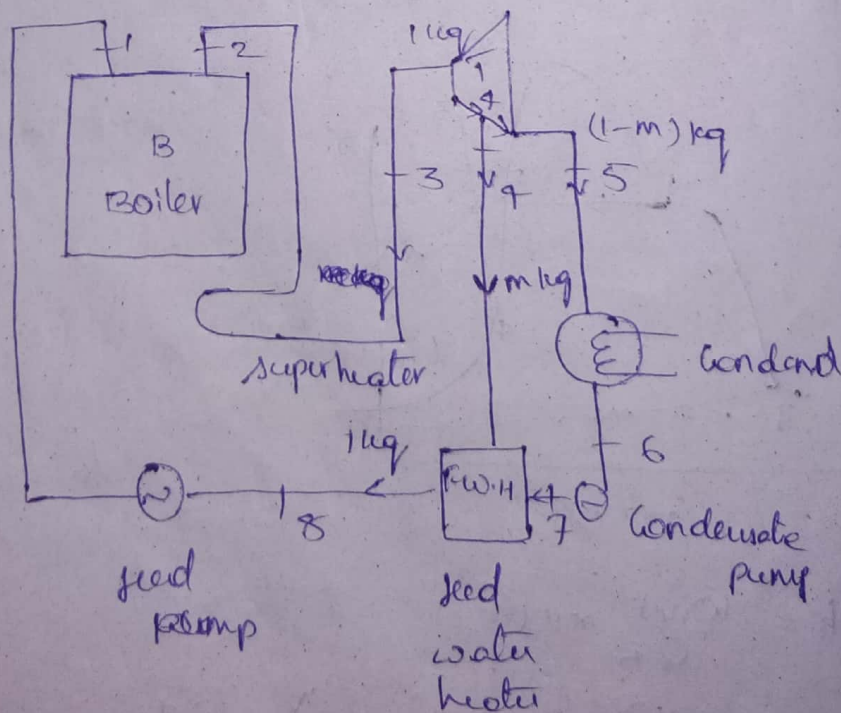 1
2
B
Boiler
1 kg
3
4
(1-m) kg
5
m kg
superheater
6
1 kg
F.W.H
7
8
Condensate
pump
feed
pump
feed
water
heater